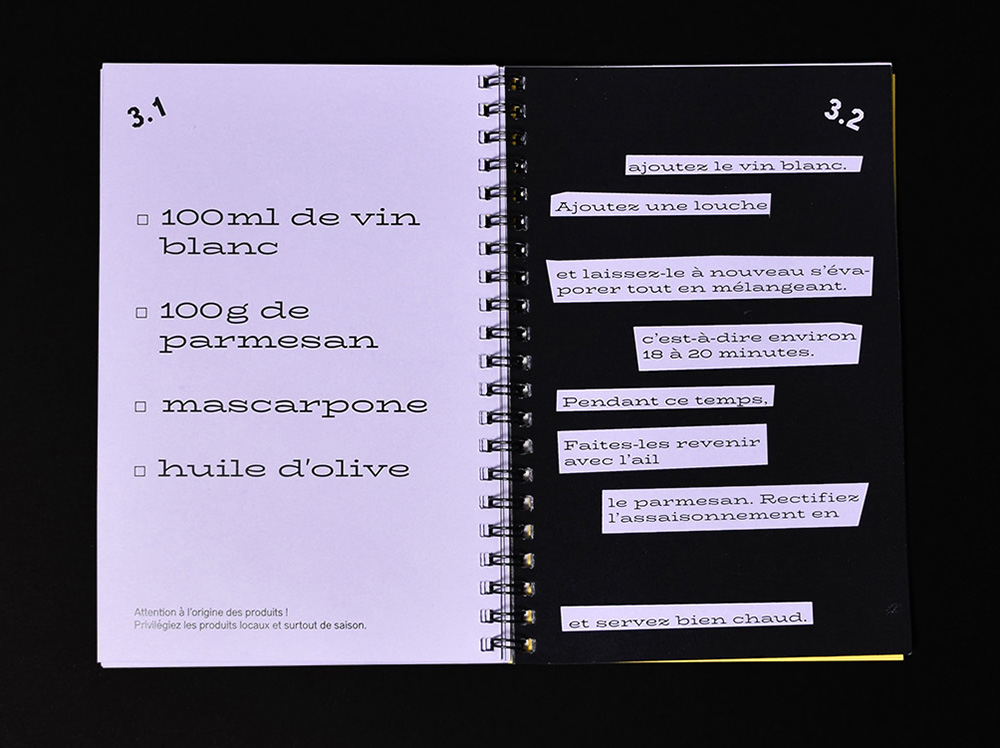 3.1
100ml de vin
blanc
100g de
parmesan
mascarpone
huile d'olive
Attention à l'origine des produits !
Privilégiez les produits locaux et surtout de saison.
3.2
ajoutez le vin blanc.
Ajoutez une louche
et laissez-le à nouveau s'éva-
porer tout en mélangeant.
c'est-à-dire environ
18 à 20 minutes.
Pendant ce temps,
Faites-les revenir
avec l'ail
le parmesan. Rectifiez
l'assaisonnement en
et servez bien chaud.